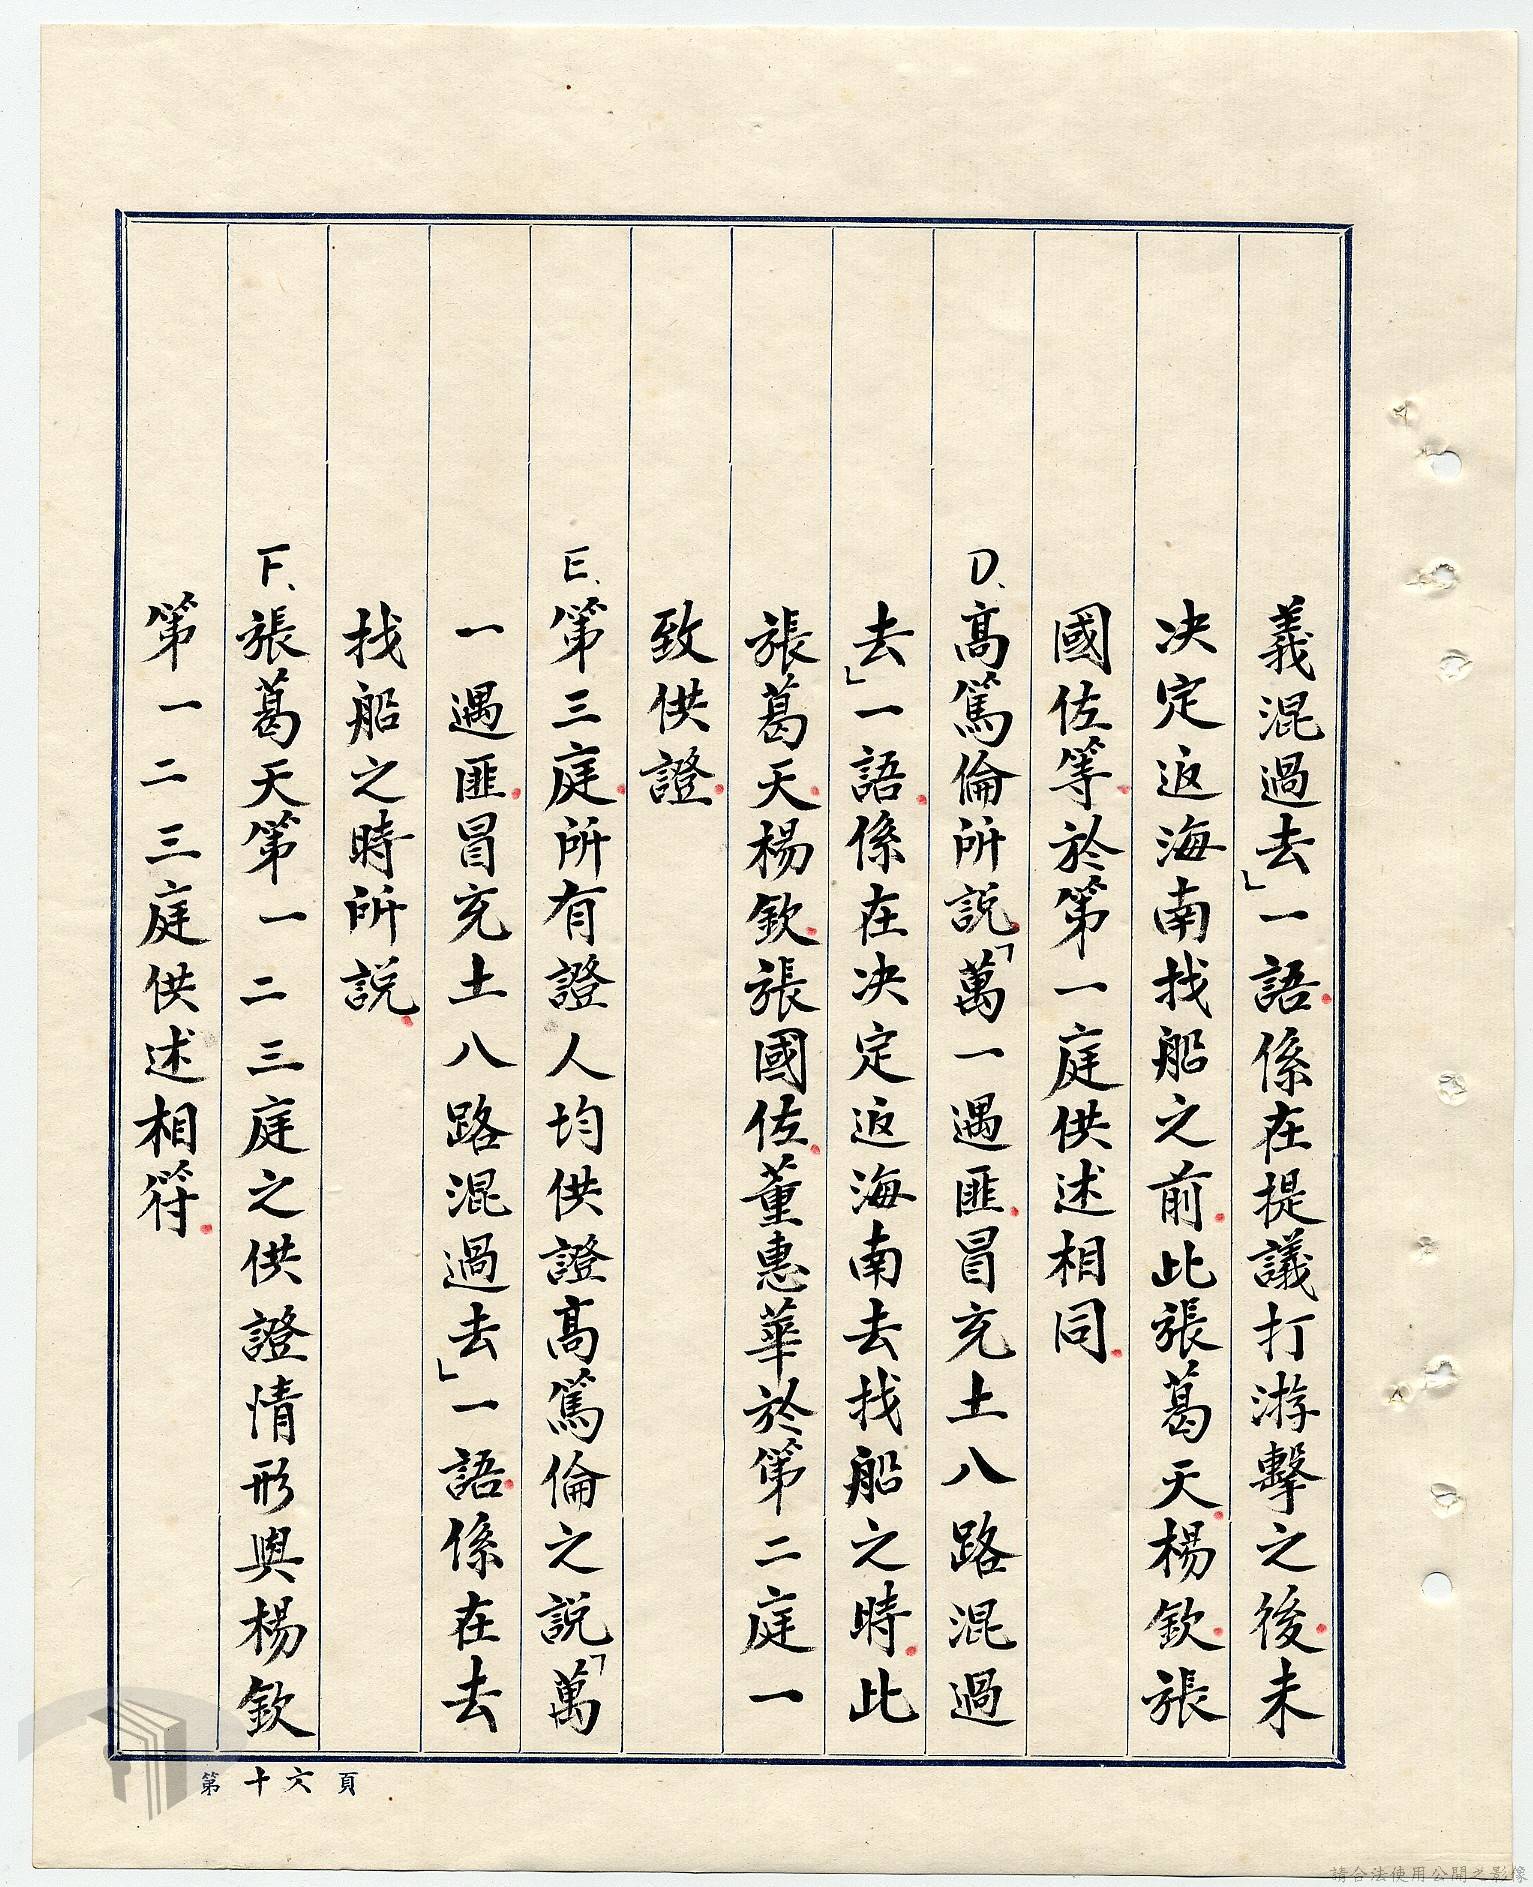 義混過去」一語係在提議打游擊之後未
决定返海南找船之前此張葛天楊欽張
國佐等於第一庭供述相同
D、高篤倫所説「萬一遇匪冒充土八路混過
去」一語係在决定返海南去找船之時此
張葛天楊欽張國佐董惠華於第二庭一
致供證
E、第三庭所有證人均供證高篤倫之説「萬
一遇匪冒充土八路混過去」一語係在去
找船之時所説
F、張葛天第一二三庭之供證情形與楊欽
第一二三庭供述相符
第十六頁
請合法使用公開之影像